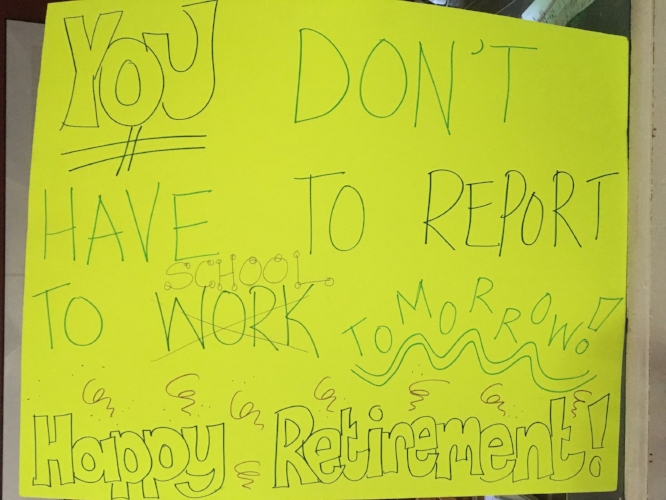 YOU DON'T
HAVE TO REPORT
SCHOOL
TO WORK TOMORROW!
Happy Retirement!